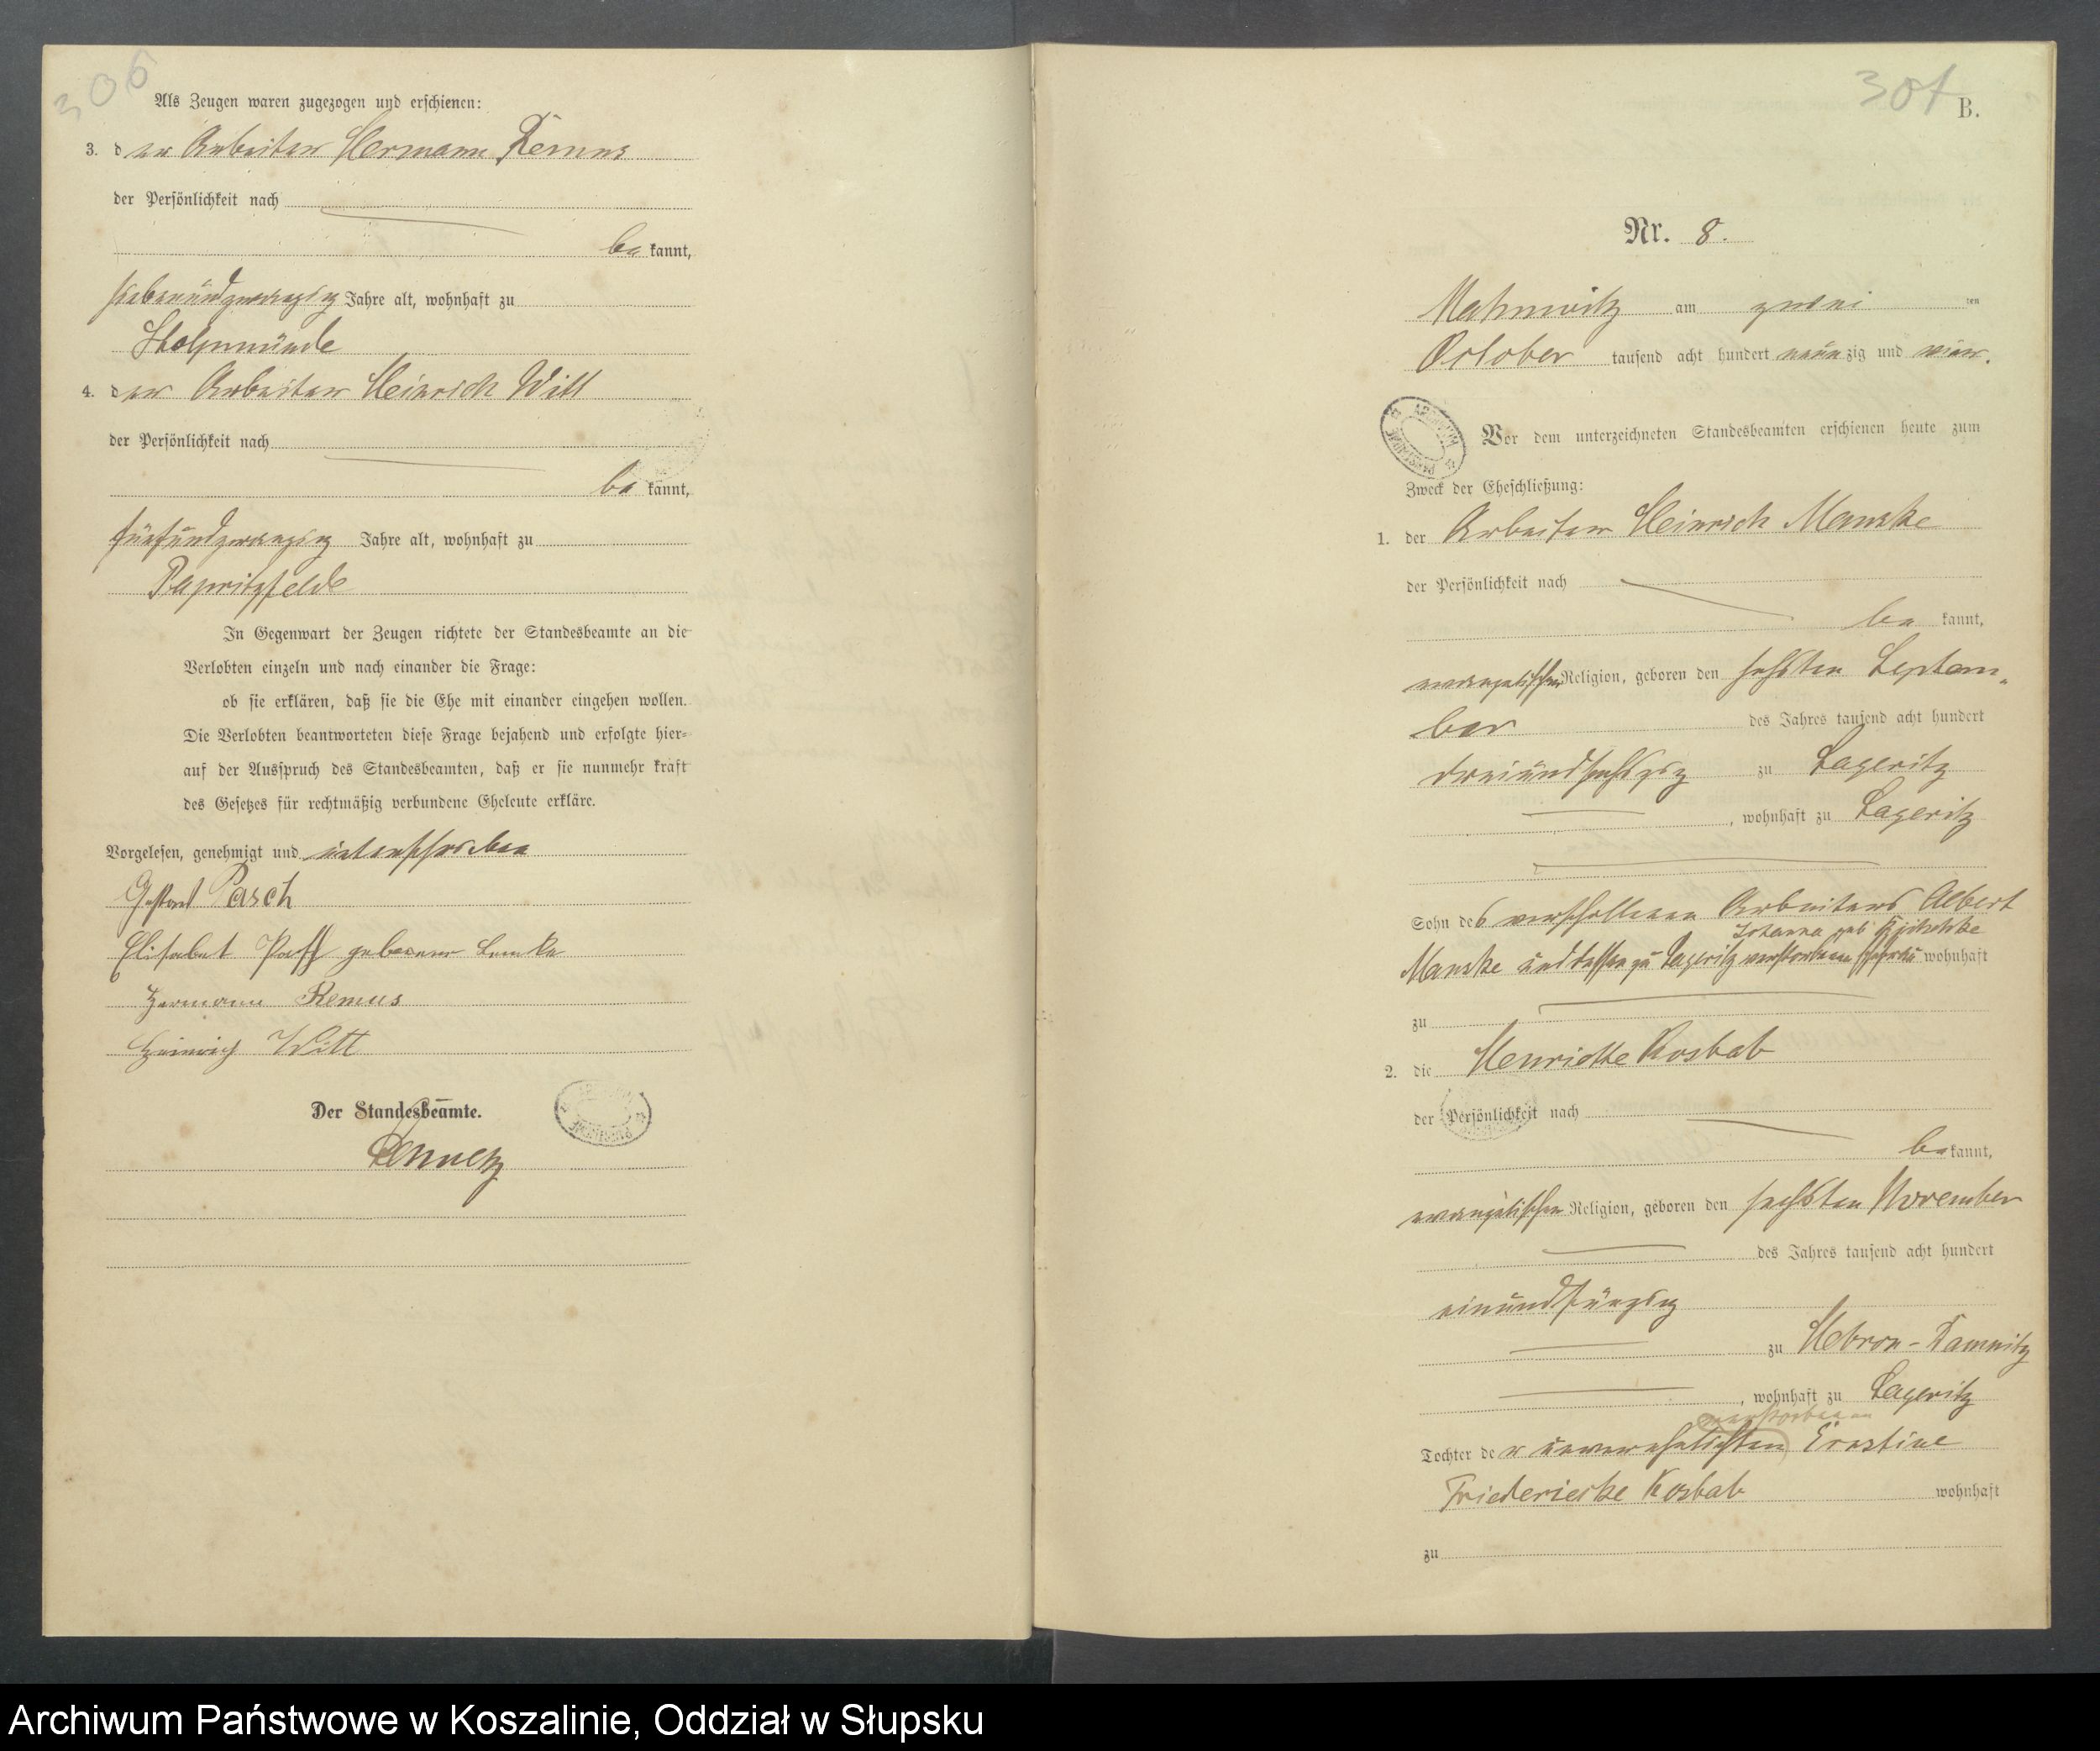 306
Als Zeugen waren zugezogen und erschienen:
3. der Arbeiter Hermann Remus
der Persönlichkeit nach
bekannt,
siebenundzwanzig Jahre alt, wohnhaft zu
Stolpmünde
4. der Arbeiter Heinrich Witt
der Persönlichkeit nach
bekannt,
fünfundzwanzig Jahre alt, wohnhaft zu
Papritzfelde
In Gegenwart der Zeugen richtete der Standesbeamte an die
Verlobten einzeln und nach einander die Frage:
ob sie erklären, daß sie die Ehe mit einander eingehen wollen.
Die Verlobten beantworteten diese Frage bejahend und erfolgte hier-
auf der Ausspruch des Standesbeamten, daß er sie nunmehr kraft
des Gesetzes für rechtmäßig verbundene Eheleute erkläre.
Vorgelesen, genehmigt und unterschrieben
Pasch
Elisabet geborene Lemke
Hermann Remus
Heinrich Witt
Der Standesbeamte.
307
B.
Nr. 8.
Mahnwitz am zweiten
October tausend acht hundert neunzig und vier.
Vor dem unterzeichneten Standesbeamten erschienen heute zum
Zweck der Eheschließung:
1. der Arbeiter Heinrich Manske
der Persönlichkeit nach
bekannt,
evangelischer Religion, geboren den sechsten Septem-
ber des Jahres tausend acht hundert
dreiundsechszig zu Lageritz
, wohnhaft zu Lageritz
Sohn des verschollenen Arbeiters Albert
Johanna geb.
Manske und dessen zu Lageritz verstorbenen Ehefrau wohnhaft
zu
2. die Henriette Kosbab
der Persönlichkeit nach
bekannt,
evangelischer Religion, geboren den sechsten November
des Jahres tausend acht hundert
einundfünfzig
zu Hebron-Damnitz
, wohnhaft zu Lageritz
verstorbenen
Tochter der unverehelichten Ernstine
Friederieke Kosbab wohnhaft
zu
Archiwum Państwowe w Koszalinie, Oddział w Słupsku